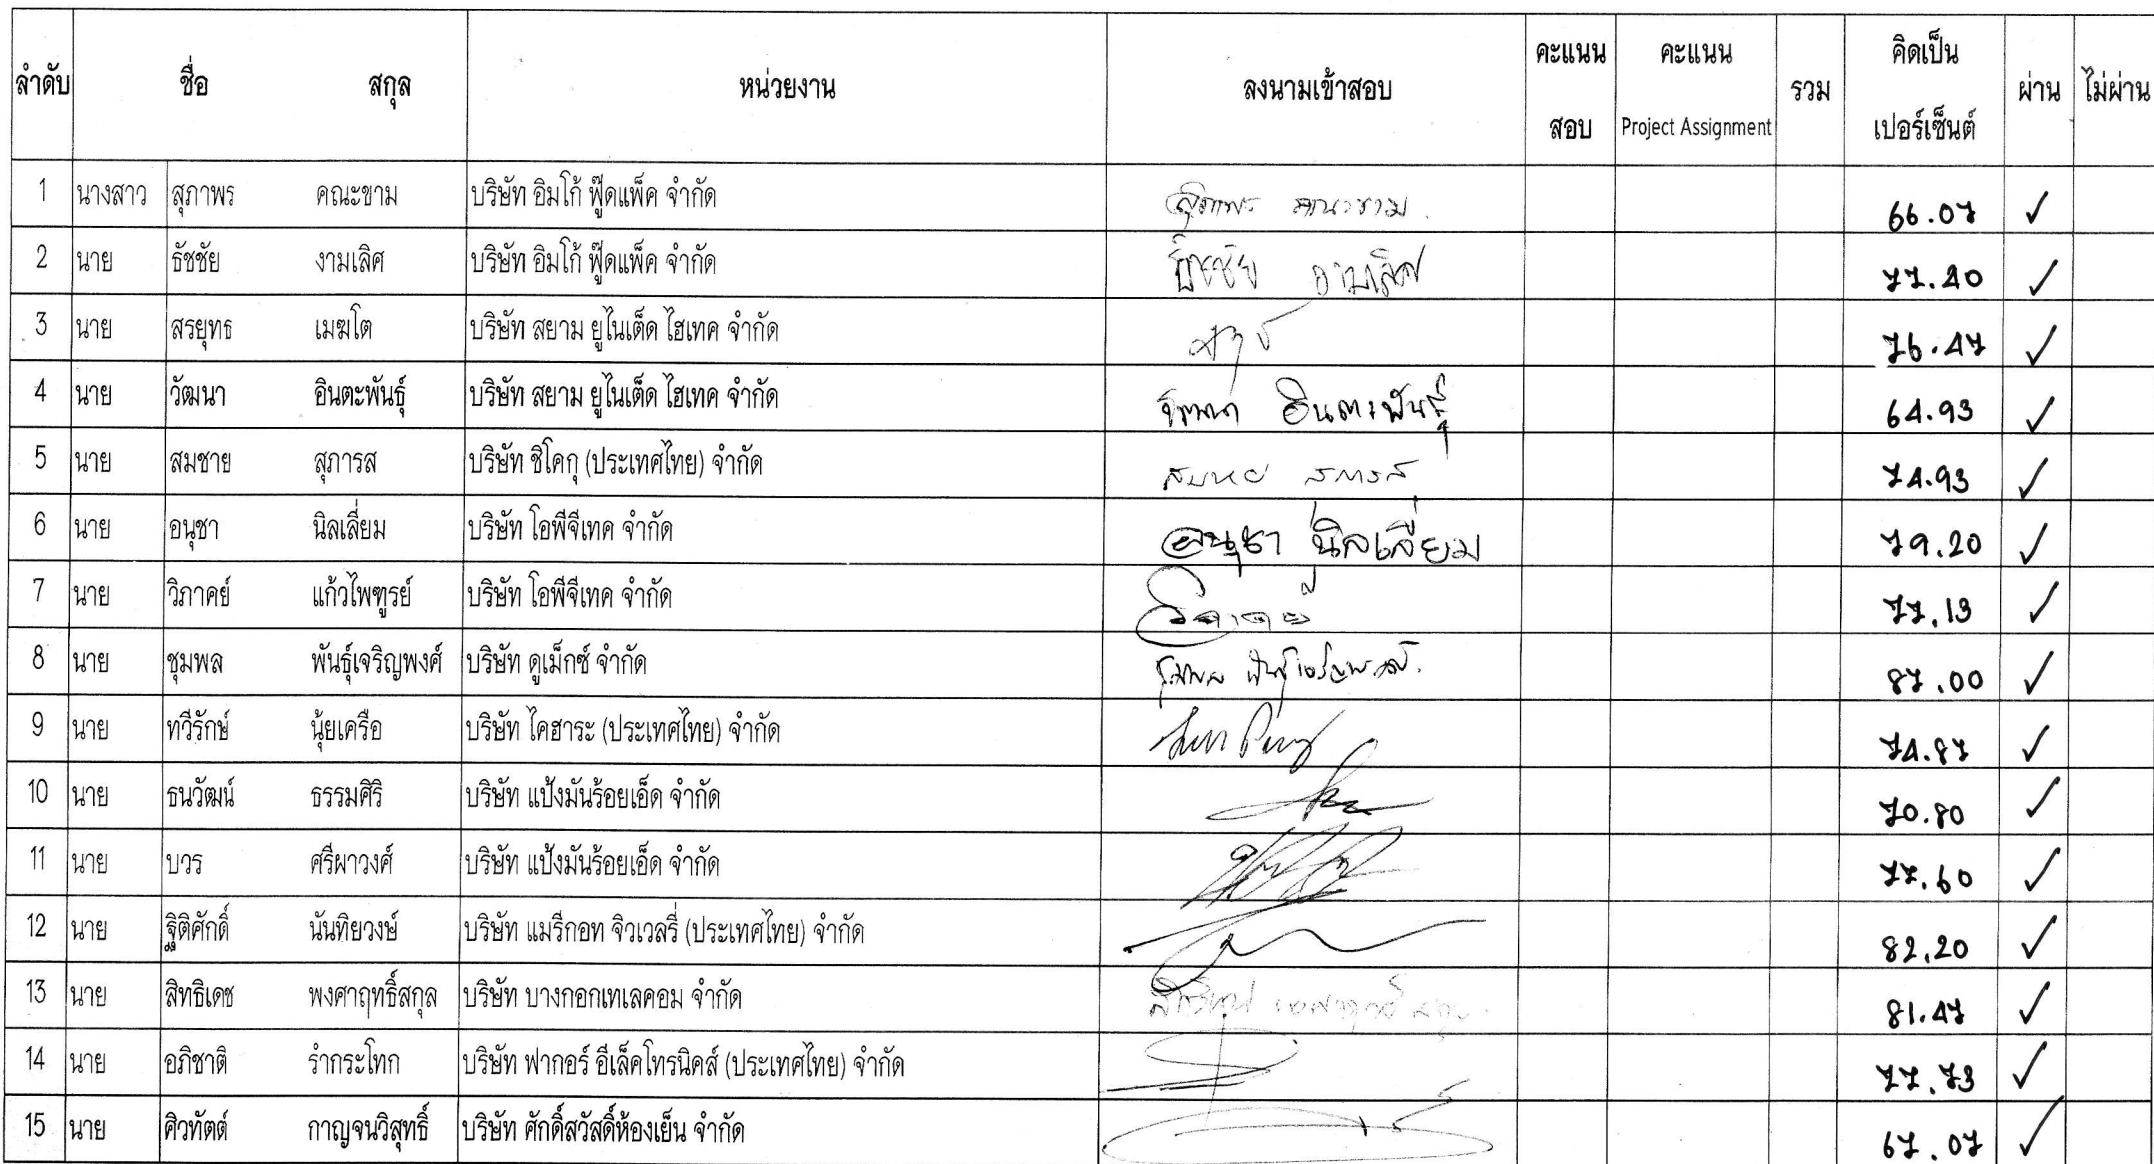 ลำดับ ชื่อ สกุล หน่วยงาน ลงนามเข้าสอบ คะแนน สอบ คะแนน Project Assignment รวม คิดเป็น เปอร์เซ็นต์ ผ่าน ไม่ผ่าน
1 นางสาว สุภาพร คณะขาม บริษัท อิมโก้ ฟู๊ดแพ็ค จำกัด สุภาพร คณะขาม 66.07 ✓
2 นาย ธัชชัย งามเลิศ บริษัท อิมโก้ ฟู๊ดแพ็ค จำกัด ธัชชัย งามเลิศ 77.40 ✓
3 นาย สรยุทธ เมฆโต บริษัท สยาม ยูไนเต็ด ไฮเทค จำกัด 76.47 ✓
4 นาย วัฒนา อินตะพันธุ์ บริษัท สยาม ยูไนเต็ด ไฮเทค จำกัด วัฒนา อินตะพันธุ์ 64.93 ✓
5 นาย สมชาย สุภารส บริษัท ชิโคกุ (ประเทศไทย) จำกัด สมชาย สุภารส 74.93 ✓
6 นาย อนุชา นิลเลี่ยม บริษัท โอพีจีเทค จำกัด อนุชา นิลเลี่ยม 79.20 ✓
7 นาย วิภาคย์ แก้วไพฑูรย์ บริษัท โอพีจีเทค จำกัด วิภาคย์ 77.13 ✓
8 นาย ชุมพล พันธุ์เจริญพงศ์ บริษัท ดูเม็กซ์ จำกัด ชุมพล พันธุ์เจริญพงศ์ 87.00 ✓
9 นาย ทวีรักษ์ นุ้ยเครือ บริษัท ไคฮาระ (ประเทศไทย) จำกัด 74.87 ✓
10 นาย ธนวัฒน์ ธรรมศิริ บริษัท แป้งมันร้อยเอ็ด จำกัด 70.80 ✓
11 นาย บวร ศรีผาวงศ์ บริษัท แป้งมันร้อยเอ็ด จำกัด 77.60 ✓
12 นาย ฐิติศักดิ์ นันทิยวงษ์ บริษัท แมรีกอท จิวเวลรี่ (ประเทศไทย) จำกัด 82.20 ✓
13 นาย สิทธิเดช พงศาฤทธิ์สกุล บริษัท บางกอกเทเลคอม จำกัด สิทธิเดช พงศาฤทธิ์สกุล 81.47 ✓
14 นาย อภิชาติ รำกระโทก บริษัท ฟากอร์ อีเล็คโทรนิคส์ (ประเทศไทย) จำกัด 77.73 ✓
15 นาย ศิวทัตต์ กาญจนวิสุทธิ์ บริษัท ศักดิ์สวัสดิ์ห้องเย็น จำกัด 67.07 ✓